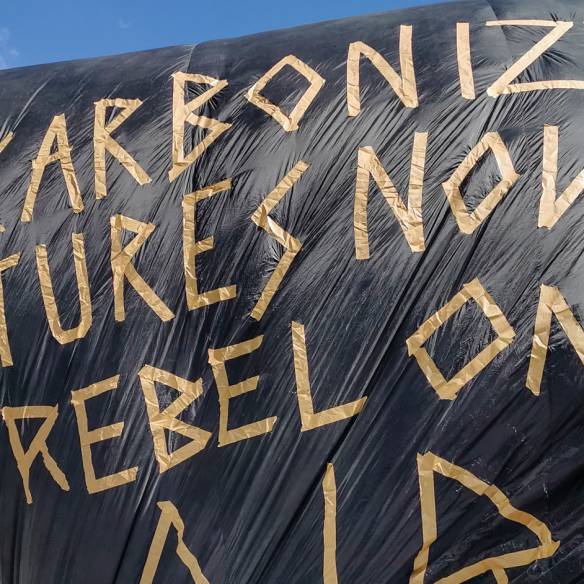 CARBONIZ
TURES NOW
REBEL ON
AIR